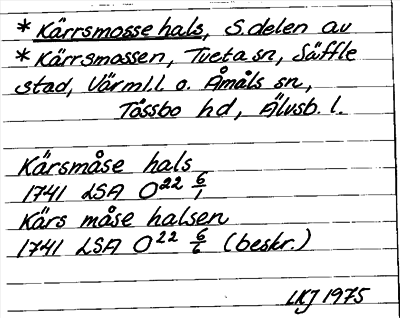 * Kärrsmosse hals, S. delen av
* Kärrsmossen, Tveta sn, Säffle
stad, Värml.l. o. Åmåls sn,
Tössbo hd, Älvsb. l.
Kärsmåse hals
1741 LSA O22 6/1
Kårs måse halsen
1741 LSA O22 6/6 (beskr.)
LKJ 1975